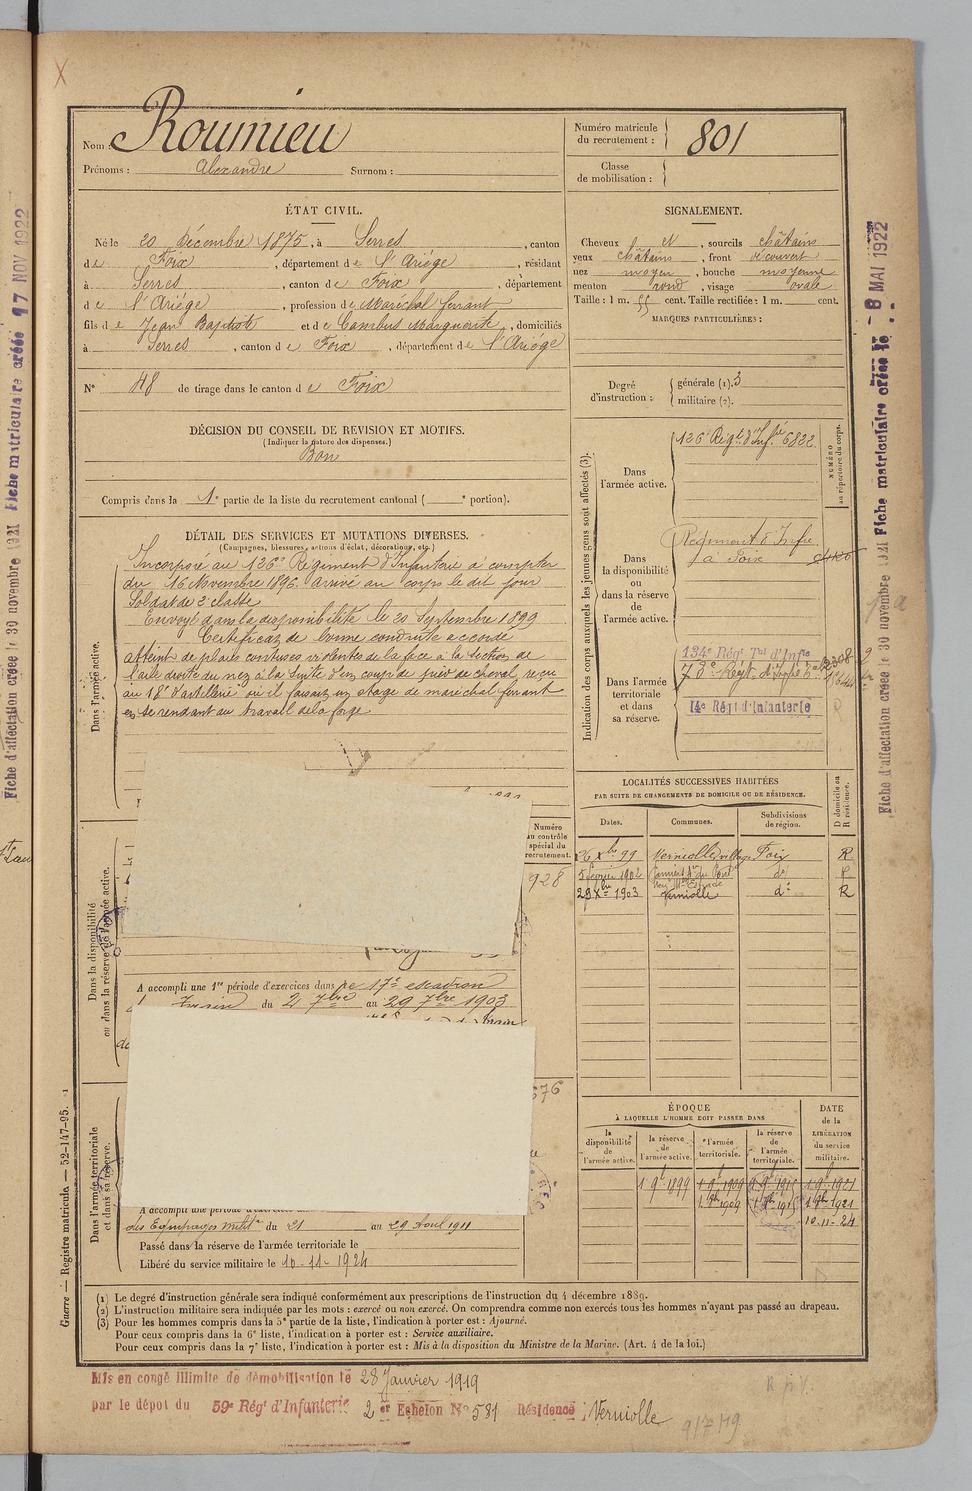 X
Nom : Roumieu
Prénoms : Alexandre Surnom :
Numéro matricule du recrutement : 801
Classe de mobilisation :
ÉTAT CIVIL.
Né le 20 Décembre 1875, à Serres, canton
de Foix, département de l'Ariége, résidant
à Serres, canton de Foix, département
de l'Ariége, profession de Maréchal ferrant
fils de Jean Baptiste et de Cambus Marguerite, domiciliés
à Serres, canton de Foix, département de l'Ariège
N° 48 de tirage dans le canton de Foix
DÉCISION DU CONSEIL DE REVISION ET MOTIFS.
(Indiquer la nature des dispenses.)
Bon
Compris dans la 1e partie de la liste du recrutement cantonal ( e portion).
SIGNALEMENT.
Cheveux et, sourcils châtains
yeux châtains, front découvert
nez moyen, bouche moyenne
menton rond, visage ovale
Taille : 1 m. 55 cent. Taille rectifiée : 1 m. cent.
MARQUES PARTICULIÈRES :
Degré d'instruction : générale (1). 3
militaire (2).
DÉTAIL DES SERVICES ET MUTATIONS DIVERSES.
(Campagnes, blessures, actions d'éclat, décorations, etc.)
Dans l'armée active.
Incorporé au 126e Régiment d'Infanterie à compter
du 16 Novembre 1896. Arrivé au corps le dit jour
Soldat de 2e classe
Envoyé dans la disponibilité le 20 Septembre 1899
Certificat de bonne conduite accordé
Atteint de plaies contuses violentes de la face à la section de
l'aile droite du nez à la suite d'un coup de pied de cheval, reçu
au 18e d'artillerie où il faisait un stage de maréchal ferrant
en se rendant au travail de la forge
Indication des corps auxquels les jeunes gens sont affectés (3).
NUMÉRO au répertoire du corps.
Dans l'armée active.
126e Régt d'Infrie 6822
Dans la disponibilité ou dans la réserve de l'armée active.
Régiment d'Infie
à Foix
Dans l'armée territoriale et dans sa réserve.
134e Régt Tal d'Infie
14e Régt d'Infanterie
Dans la disponibilité ou dans la réserve de l'armée active.
Numéro au contrôle spécial du recrutement.
928
A accompli une 1re période d'exercices dans le 17e escadron
du Train du 2 7bre au 29 7bre 1903
LOCALITÉS SUCCESSIVES HABITÉES
PAR SUITE DE CHANGEMENTS DE DOMICILE OU DE RÉSIDENCE.
Dates. Communes. Subdivisions de région. D domicile ou R résidence.
26 Xbre 99 Verniolle village Foix R
5 février 1902 do R
29 Xbre 1903 Verniolle do R
Dans l'armée territoriale et dans sa réserve.
676
A accompli une période d'exercices
des Equipages milit. du 21 au 29 Aout 1911
Passé dans la réserve de l'armée territoriale le
Libéré du service militaire le 10-11-1924
ÉPOQUE
À LAQUELLE L'HOMME DOIT PASSER DANS
la disponibilité de l'armée active. la réserve de l'armée active. l'armée territoriale. la réserve de l'armée territoriale.
DATE de la LIBÉRATION du service militaire.
1 9b 1899 1 9b 1909 1 9b 1915 1 9b 1921
1 9b 1909 1 9b 1915 1 9b 1921
10-11-24
(1) Le degré d'instruction générale sera indiqué conformément aux prescriptions de l'instruction du 4 décembre 1889.
(2) L'instruction militaire sera indiquée par les mots : exercé ou non exercé. On comprendra comme non exercés tous les hommes n'ayant pas passé au drapeau.
(3) Pour les hommes compris dans la 5e partie de la liste, l'indication à porter est : Ajourné.
Pour ceux compris dans la 6e liste, l'indication à porter est : Service auxiliaire.
Pour ceux compris dans la 7e liste, l'indication à porter est : Mis à la disposition du Ministre de la Marine. (Art. 4 de la loi.)
Mis en congé illimité de démobilisation le 28 Janvier 1919
par le dépot du 59e Régt d'Infanterie 2er Echelon N° 581 Résidence : Verniolle
9/7/19
Guerre — Registre matricule. — 52-147-95.
Fiche d'affectation créée le 30 novembre 1921 Fiche matriculaire créée 17 NOV 1922
Fiche d'affectation créée le 30 novembre 1921 Fiche matriculaire créée le 8 MAI 1922